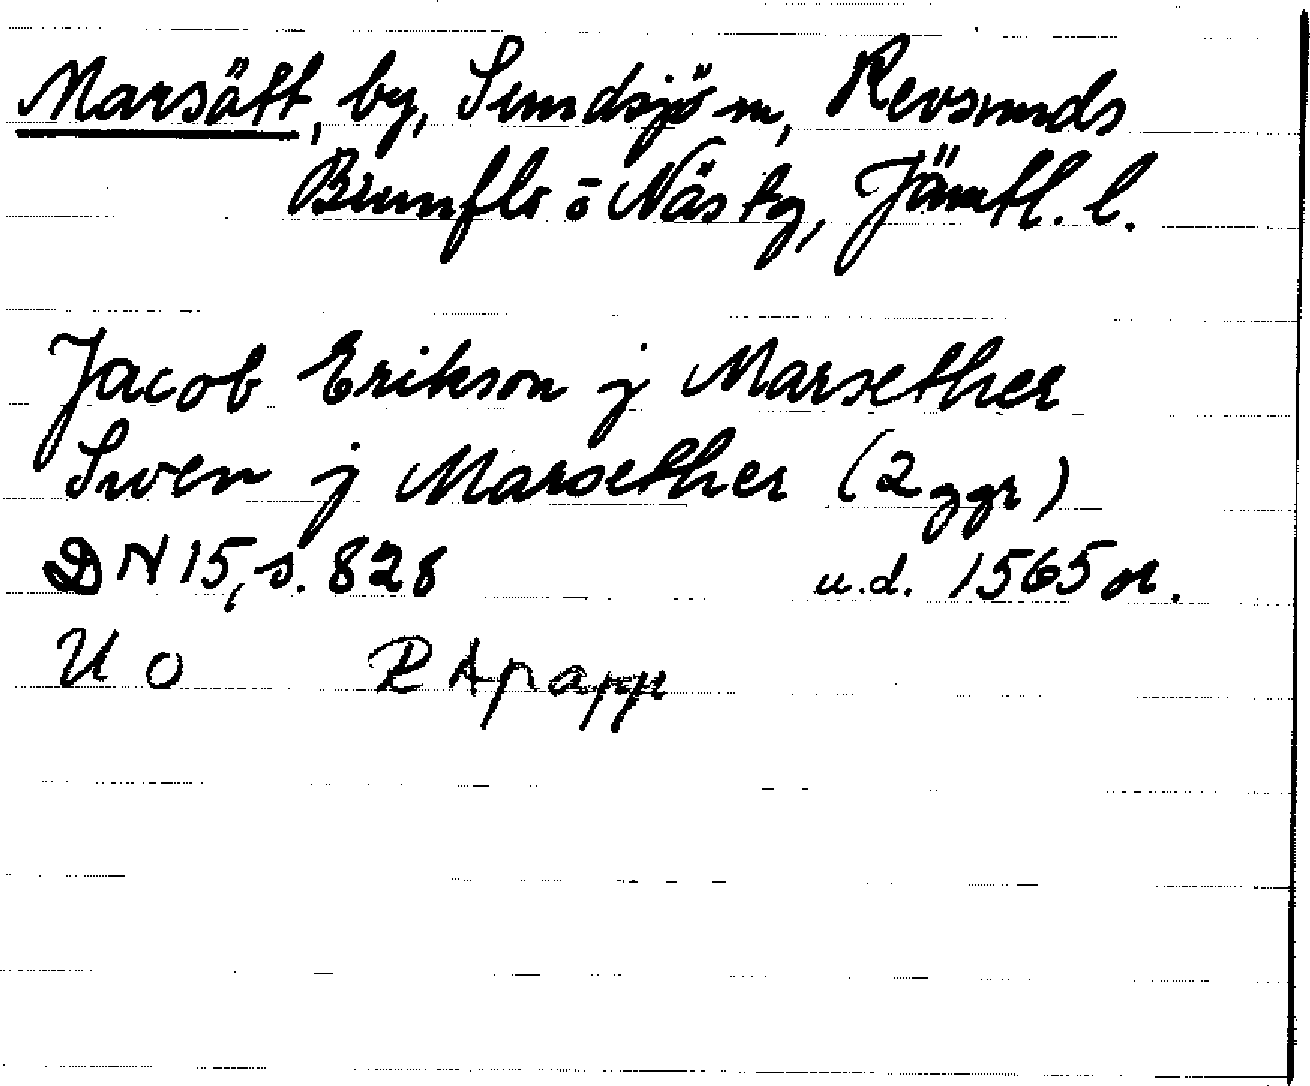 Marsätt, by, Sundsjö sn, Revsunds
Brunflo o Näs tg, Jämtl. l.
Jacob Erikson j Marsether
Swen j Marsether (2 ggr)
DN 15, s. 828 u.d. 1565 or.
U O R A papp